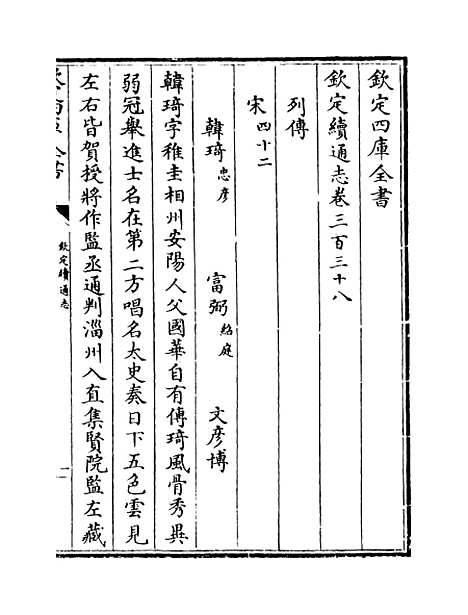 欽定四庫全書
欽定續通志卷三百三十八
列傳
宋四十二
韓琦忠彦 富弼紹庭 文彦博
韓琦字稚圭相州安陽人父國華自有傳琦風骨秀異
弱冠舉進士名在第二方唱名太史奏日下五色雲見
左右皆賀授將作監丞通判淄州入直集賢院監左藏
欽定續通志